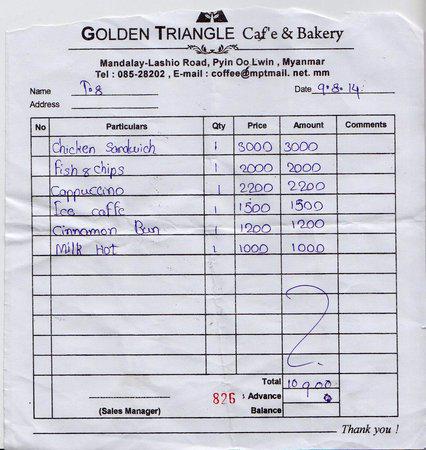 GOLDEN TRIANGLE Caf'e & Bakery
Mandalay-Lashio Road, Pyin Oo Lwin , Myanmar
Tel : 085-28202 , E-mail : coffee@mptmail. net. mm
Name T.8 Date 9.8.14.
Address
No Particulars Qty Price Amount Comments
Chicken Sandwich 1 3000 3000
Fish & chips 1 2000 2000
Cappuccino 1 2200 2200
Ice caffe 1 1500 1500
Cinnamon Bun 1 1200 1200
Milk Hot 1 1000 1000
Total 10900
826 Advance
(Sales Manager) Balance
Thank you !